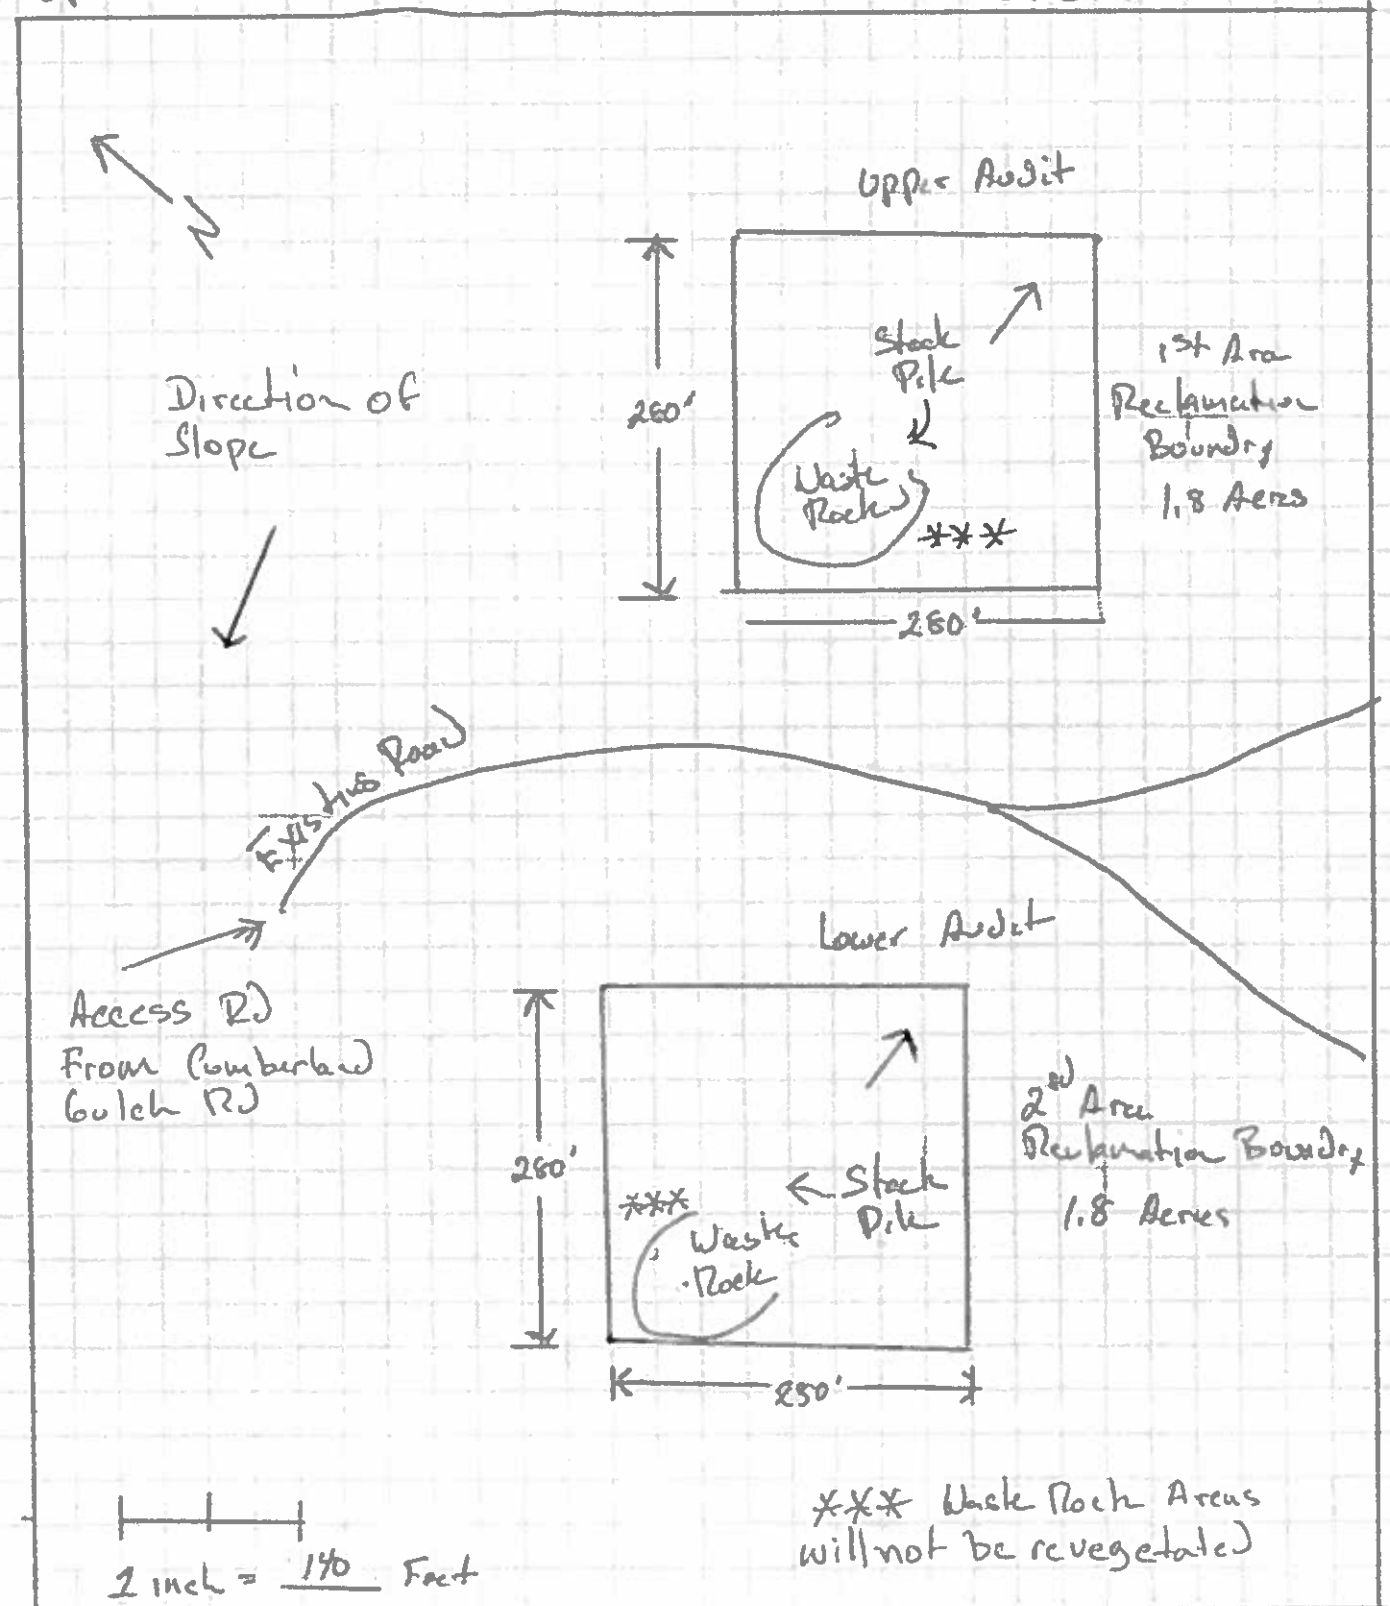 N
Upper Audit
Stock
Pile
280'
Waste
Rock
***
280'
1st Area
Reclamation
Boundry
1.8 Acres
Direction of
Slope
Existing Road
Access RD
From Cumberland
Gulch RD
Lower Audit
280'
Stock
Pile
***
Waste
Rock
280'
2nd Area
Reclamation Boundry
1.8 Acres
1 inch = 140 Feet
*** Waste Rock Areas
will not be revegetated